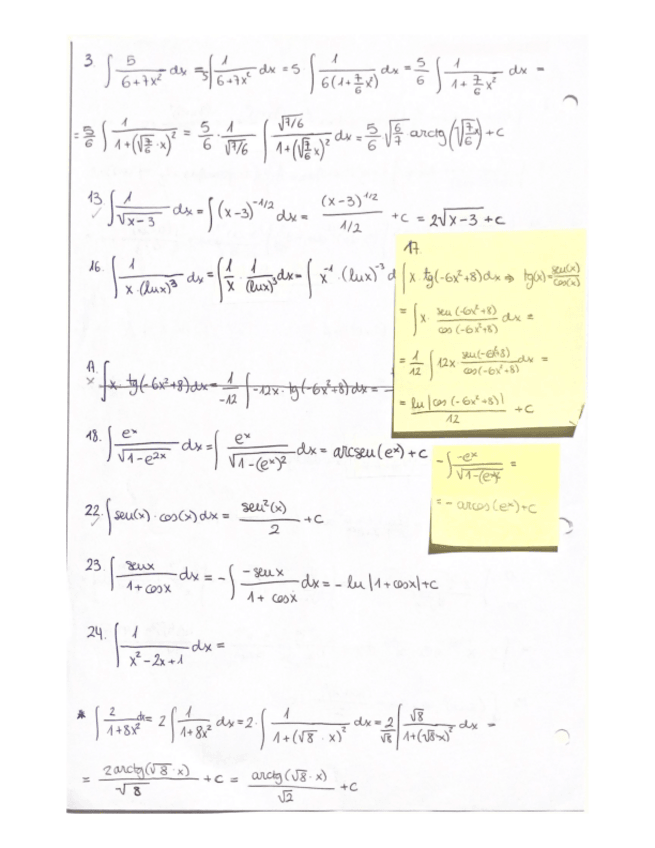 3. ∫ 5/(6+7x²) dx = 5∫ 1/(6+7x²) dx = 5 ∫ 1/(6(1+7/6 x²)) dx = 5/6 ∫ 1/(1+7/6 x²) dx =
= 5/6 ∫ 1/(1+(√(7/6)·x)²) = 5/6 · 1/√(7/6) ∫ √(7/6)/(1+(√(7/6)x)²) dx = 5/6 √(6/7) arctg(√(7/6)x)+C
13. ∫ 1/√(x-3) dx = ∫(x-3)^(-1/2) dx = (x-3)^(1/2)/(1/2) + C = 2√(x-3) + C
16. ∫ 1/(x·(lux)³) dx = ∫ 1/x · 1/(lux)³ dx = ∫ x⁻¹·(lux)⁻³ d
17.
∫ x tg(-6x²+8)dx ⇒ tg(x)= seu(x)/cos(x)
= ∫ x· seu(-6x²+8)/cos(-6x²+8) dx =
= 1/12 ∫ 12x seu(-6x²+8)/cos(-6x²+8) dx =
= lu|cos(-6x²+8)|/12 + C
17. ∫ x·tg(-6x²+8)dx = 1/-12 ∫ -12x·tg(-6x²+8)dx = -
18. ∫ eˣ/√(1-e²ˣ) dx = ∫ eˣ/√(1-(eˣ)²) dx = arcseu(eˣ)+C
-∫ -eˣ/√(1-(eˣ =
= - arcos(eˣ)+C
22. ∫ seu(x)·cos(x)dx = seu²(x)/2 + C
23. ∫ seux/(1+cosx) dx = -∫ -seux/(1+cosx) dx = - lu|1+cosx|+C
24. ∫ 1/(x²-2x+1) dx =
* ∫ 2/(1+8x²) dx = 2∫ 1/(1+8x²) dx = 2·∫ 1/(1+(√8·x)²) dx = 2/√8 ∫ √8/(1+(√8·x)²) dx =
= 2arctg(√8·x)/√8 + C = arctg(√8·x)/√2 + C